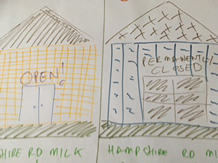 OPEN!
PERMANENTLY
CLOSED
SHIRE RD MILK
HAMPSHIRE RD MI